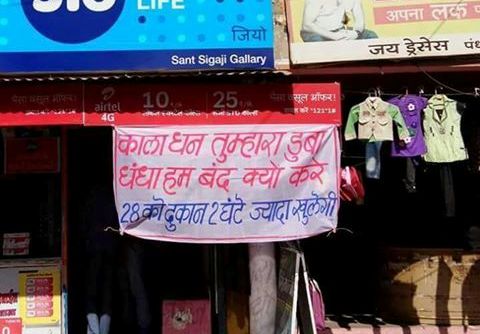 LIFE
जियो
Sant Sigaji Gallary
अपना लक
जय ड्रेसेस
airtel
4G
10
25
ऑफर!
काला धन तुम्हारा डुबा
धंधा हम बंद क्यो करे
28 को दुकान 2 घंटे ज्यादा खुलेगी